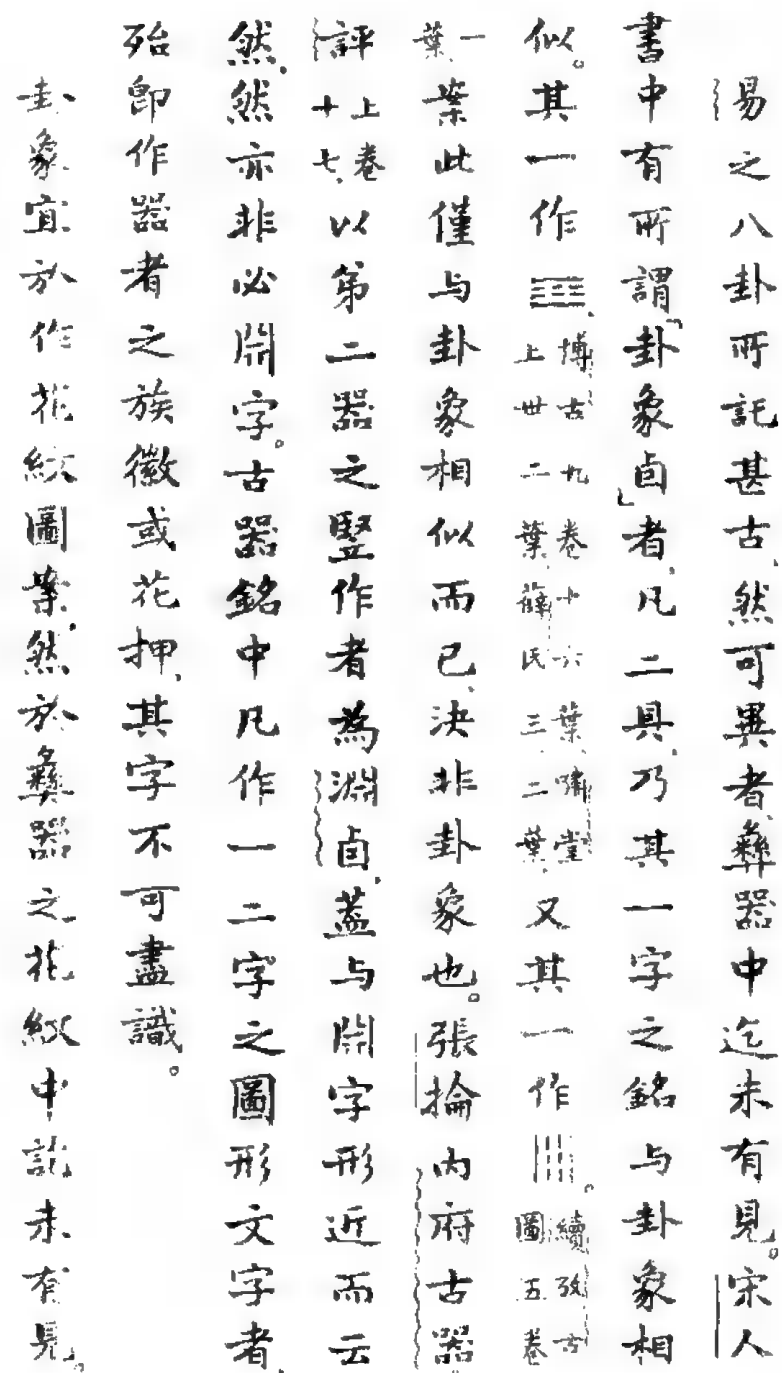 易之八卦所託甚古、然可異者、彝器中迄未有見。宋人
書中有所謂「卦象卣」者、凡二具、乃其一字之銘与卦象相
似。其一作☲、博古九卷十六葉、嘯堂上廿二葉、薛氏三、二葉、又其一作〣。續攷古圖五卷
一葉、葉此僅与卦象相似而已、決非卦象也。張掄內府古器
評上卷十七、以第二器之豎作者為淵卣、蓋与𣶒字形近而云
然、然亦非必𣶒字。古器銘中凡作一二字之圖形文字者、
殆卽作器者之族徽或花押、其字不可盡識。
卦象宜於作花紋圖案、然於彝器之花紋中訖未有見。